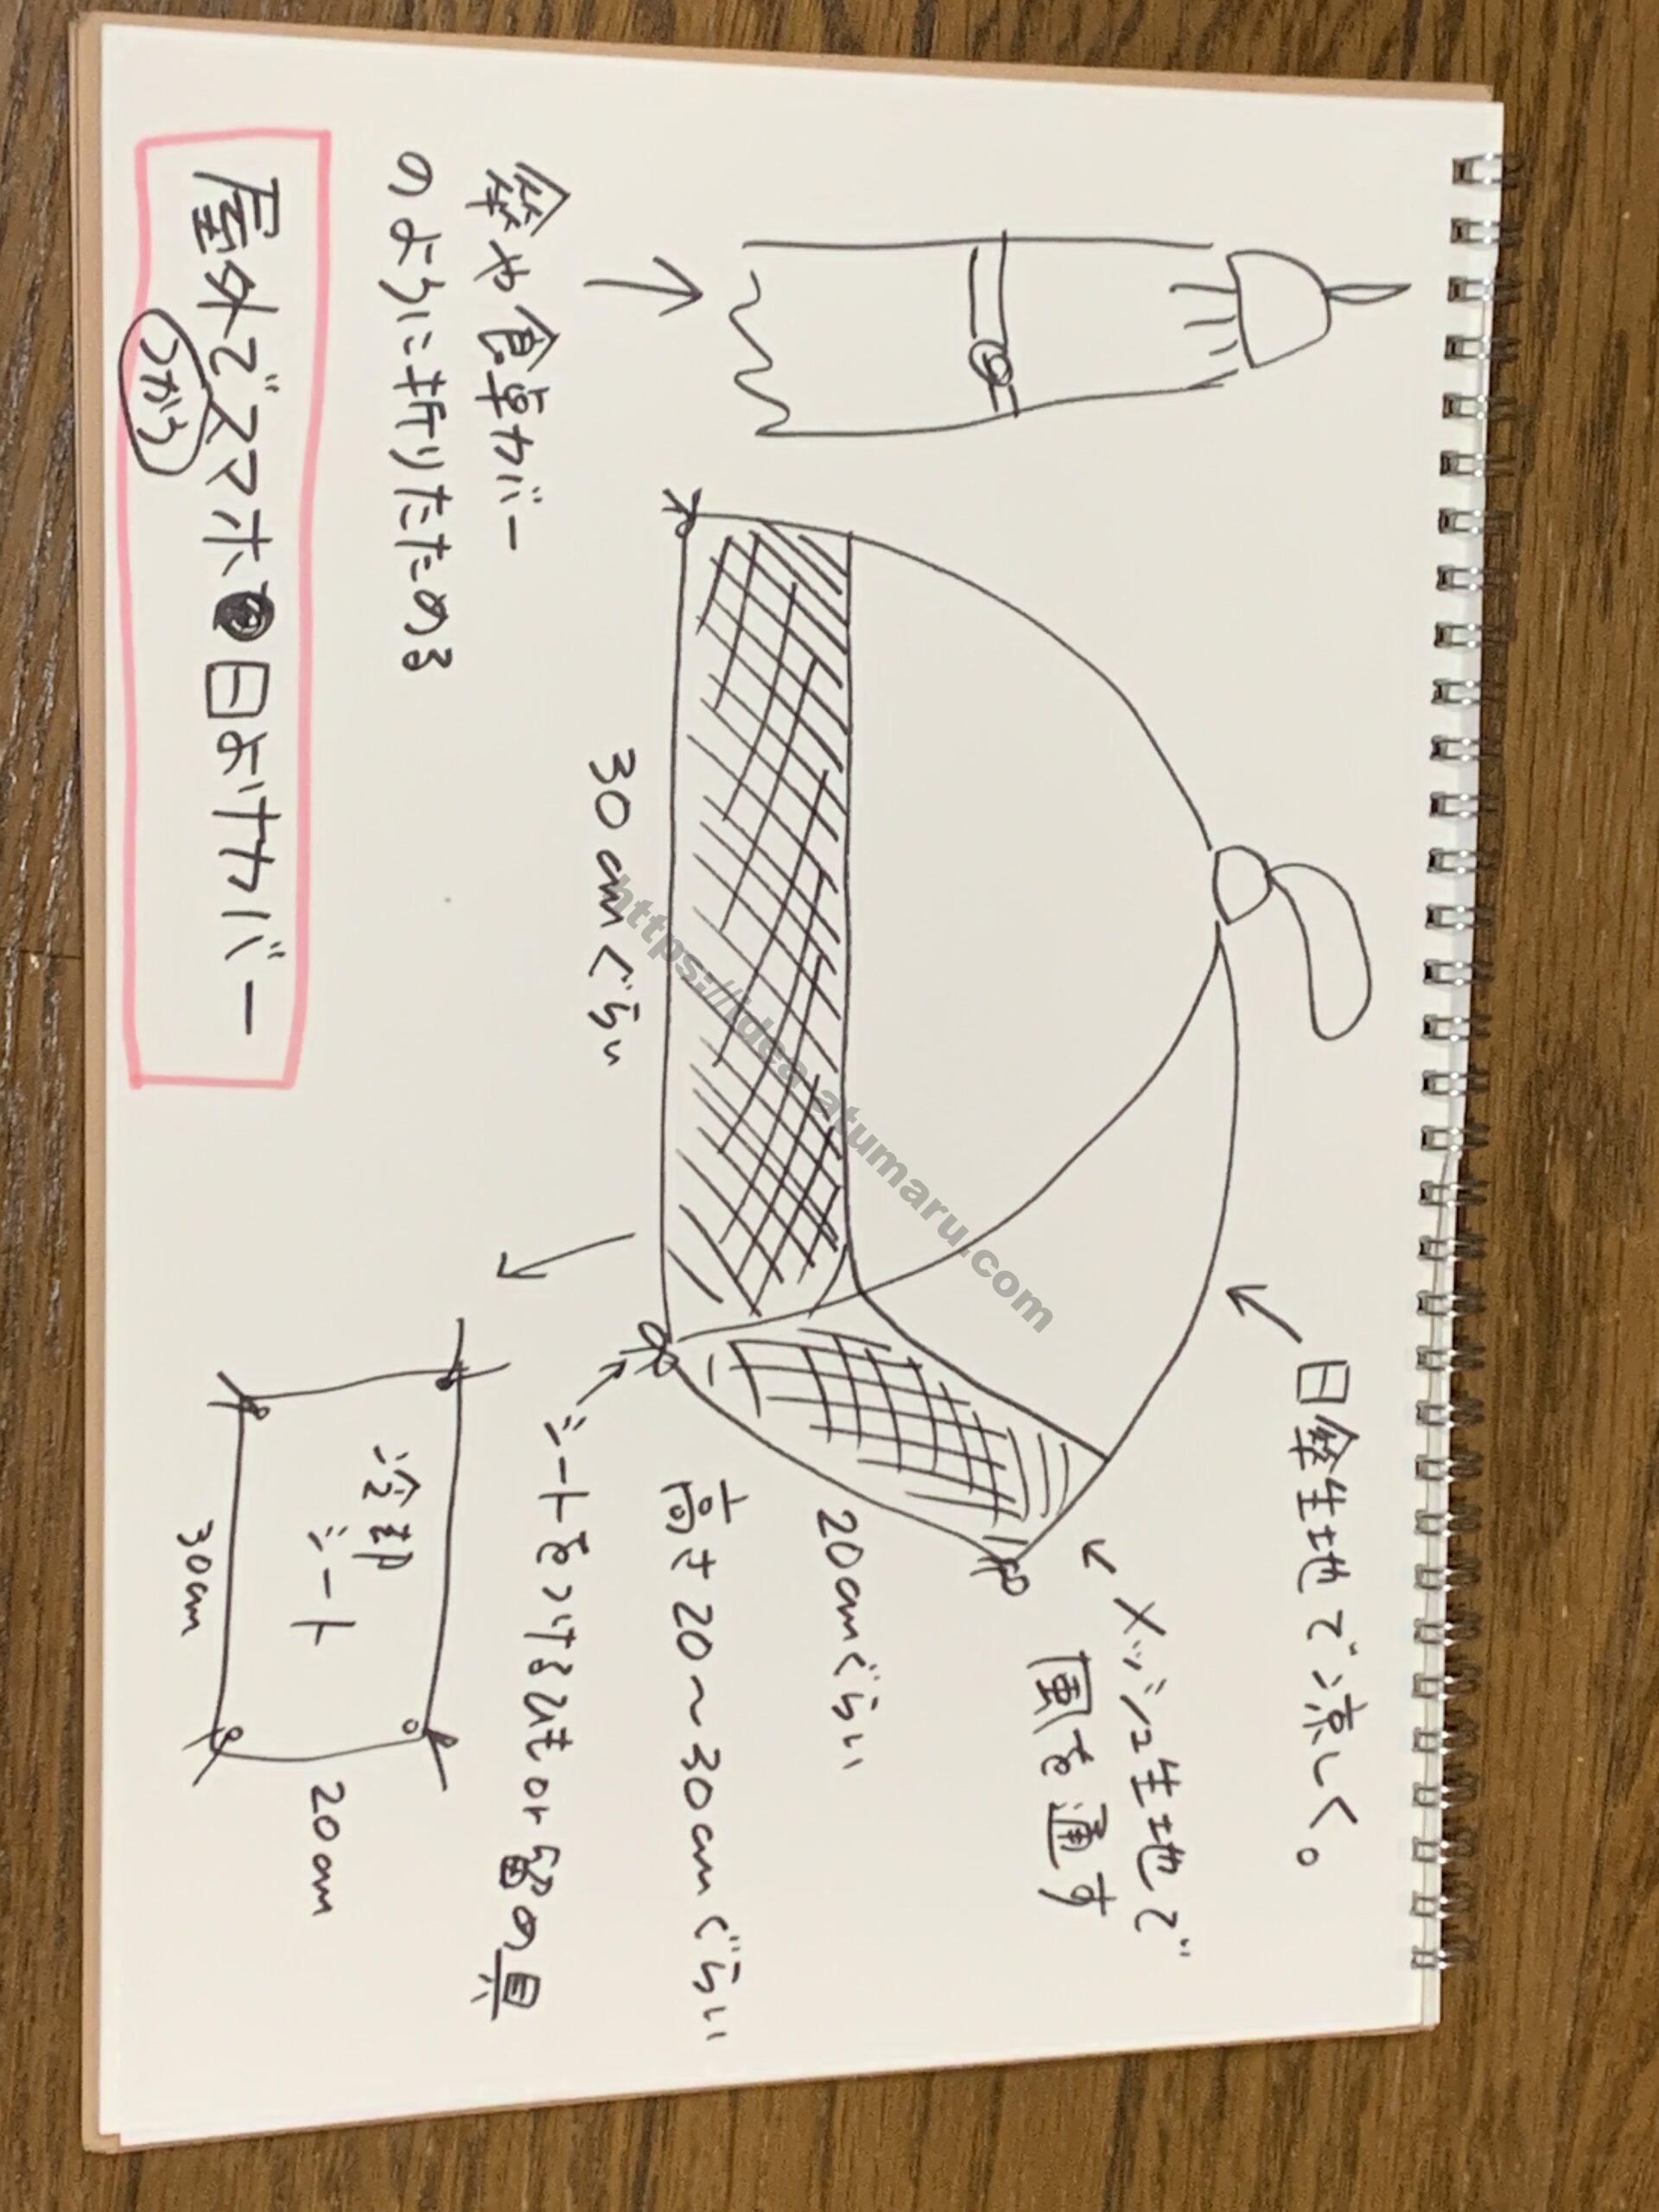 日傘生地で涼しく。
メッシュ生地で
風を通す
20cmぐらい
高さ20〜30cmぐらい
30cmぐらい
シートをつけるひもor留め具
傘や食卓カバー
のように折りたためる
冷却
シート
20cm
30cm
屋外でスマホ日よけカバー
つかう
https://idea.atumaru.com